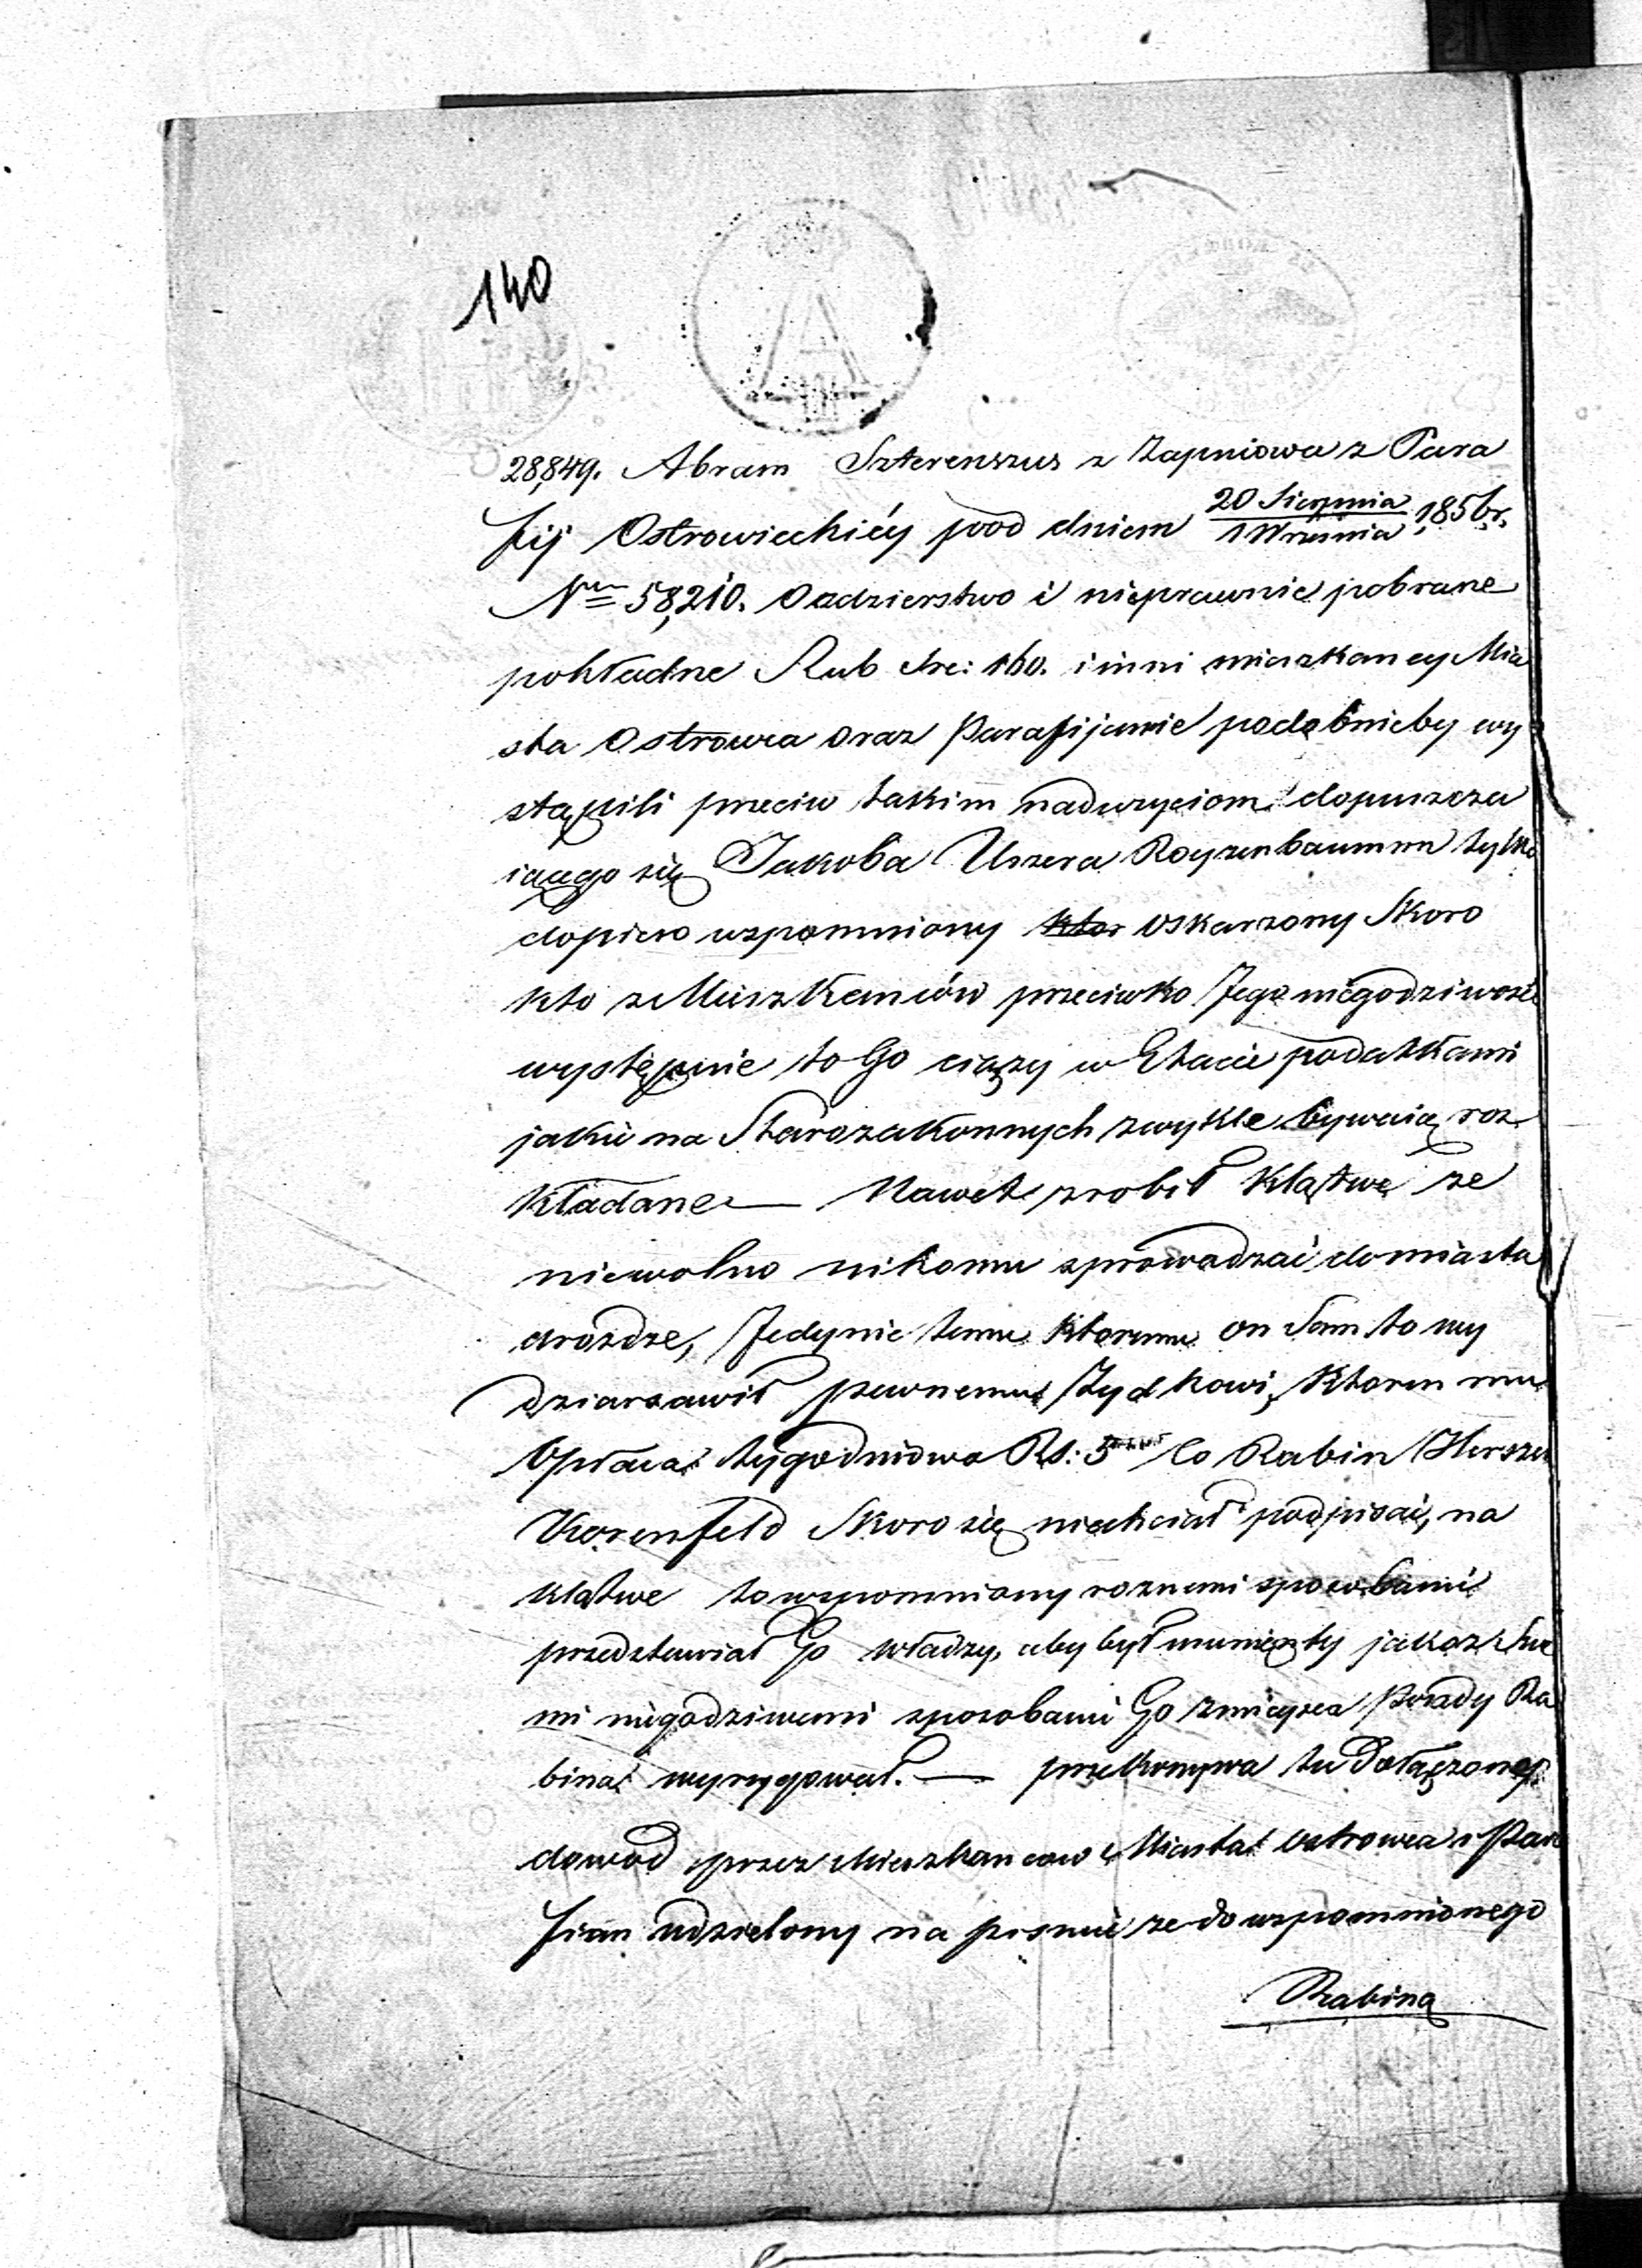 140
28,849. Abram Szterenszus z Łapniowa z Para
fij Ostrowieckiéy pod dniem 20 Sierpnia / 1 Września 1856 r.
Nro 58,210. O zdzierstwo i nieprawnie pobrane
pokładne Rub sre: 160. i inni mieszkancy Mia
sta Ostrowca oraz Parafijanie podobnieby wy
stąpili przeciw takim nadużyciom dopuszcza
iącego się Jakoba Uszera Royzenbauma tylko
dopiero wspomniony ktor oskarzony Skoro
kto z Mieszkancow przeciwko Jego niegodziwośći
wystąpienie to Go ciąży w Etacie podatkami
jakie na Starozakonnych zwykle bywaią roz
kładane — Nawet zrobił Klątwę ze
niewolno nikomu sprowadzać do miasta
drożdze, Jedynie temu ktoremu on Sam to wy
dziarzawił pewnemu Żydkowi, Ktoren mu
Opłaca tygodniowo Rs: 5 Co Rabin Hersze
Korenfeld Skoro się niechciał podpisać, na
klątwe to wspomniony roznemi sposobami
przedstawiał Go władzy, aby był usunięty jakoz Swe
mi niegodziwemi sposobami Go zmieysca Posady Ra
bina wyrugował. — przekonywa tu Dołączony
dowod przez Mieszkancow Miasta Ostrowca i Para
fian udzielony na pismie ze do wspomnionego
Rabina